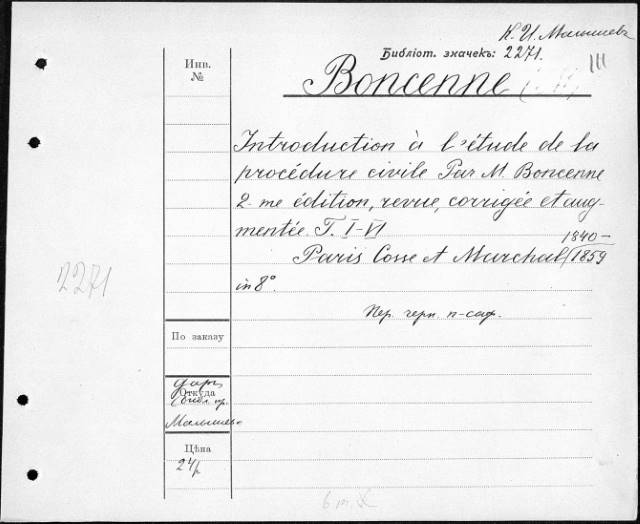 К. И. Малышевъ
Библіот. значекъ: 2271.
III
Инв.
№
Boncenne
Introduction à l'étude de la
procédure civile Par M. Boncenne
2-me édition, revue, corrigée et aug-
mentée. T. I-VI
1840-
Paris Cosse et Marchal, 1859
in 8°.
2271
Пер. черн. п-саф.
По заказу
Откуда
даръ
Малышева
Цѣна
24 р